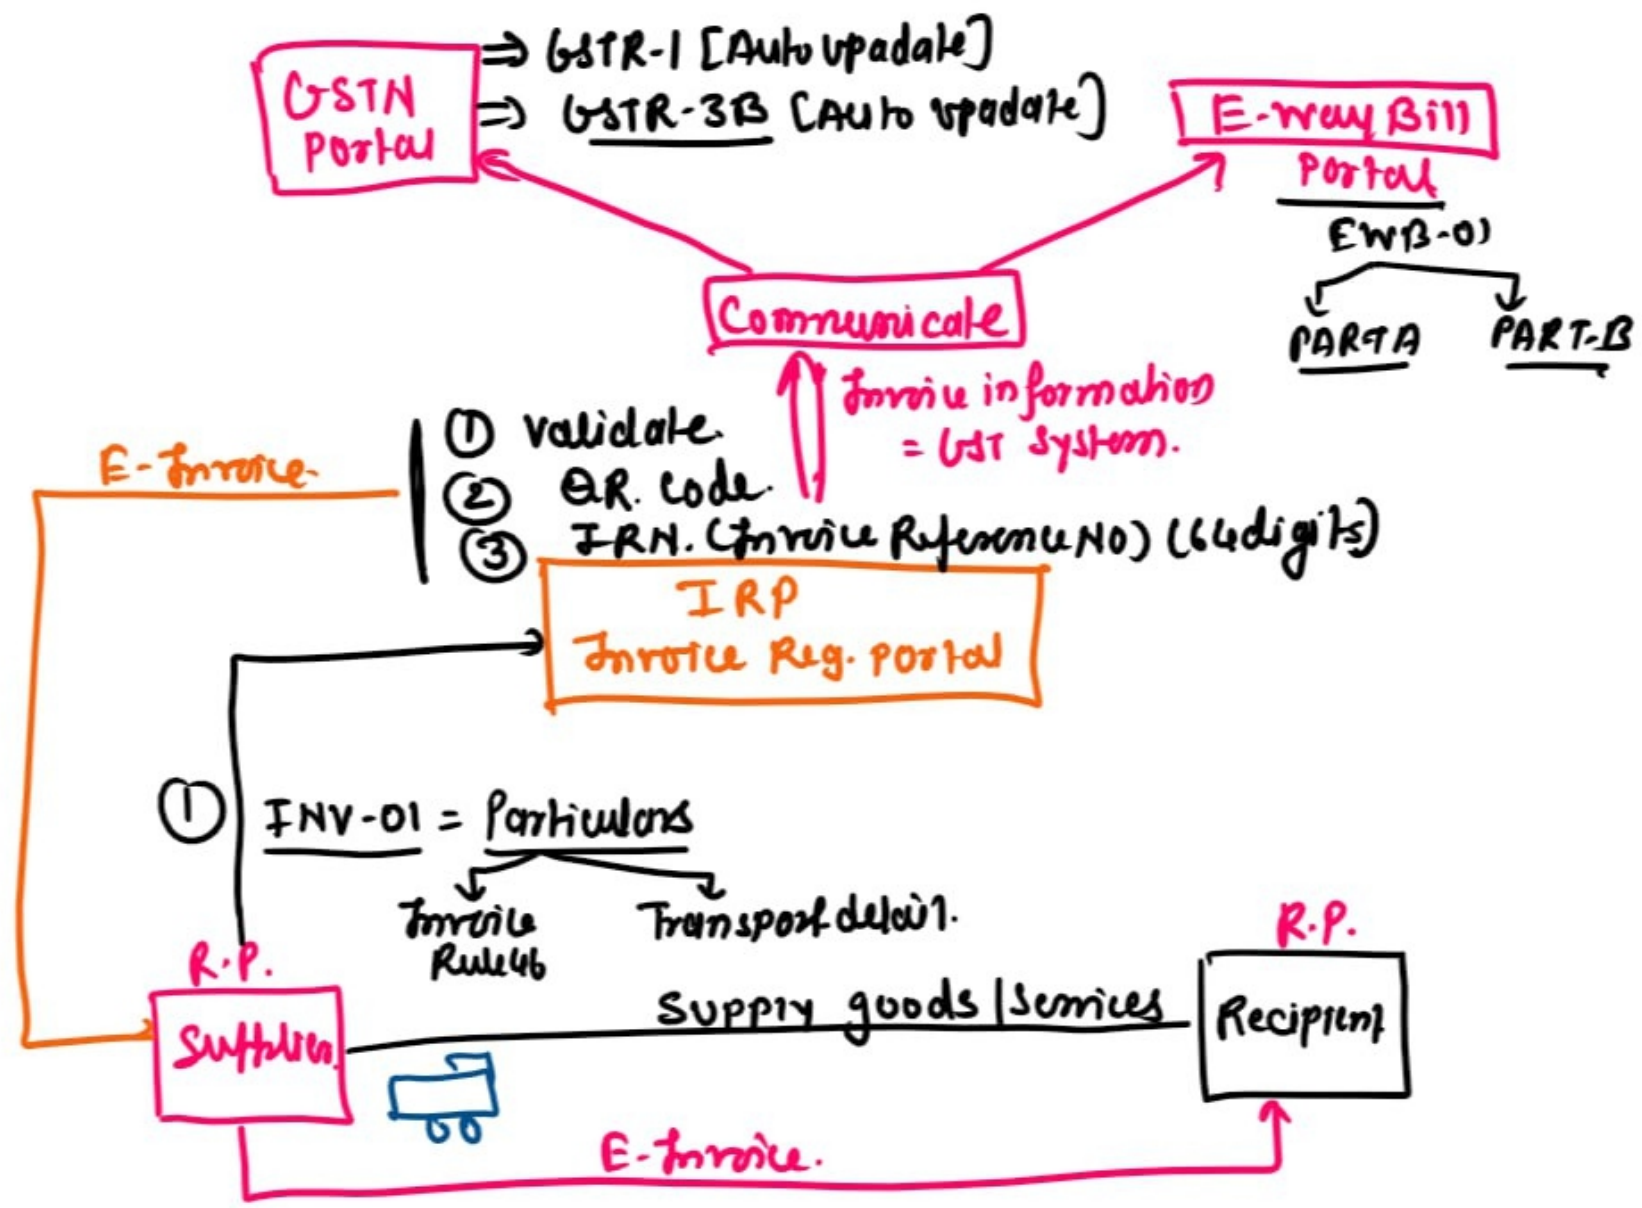 GSTN
Portal
⇒ GSTR-1 [Auto upadate]
⇒ GSTR-3B [Auto upadate]
E-way Bill
Portal
EWB-01
PART A
PART-B
Communicate
Invoice information
= GST System.
E-Invoice.
① Validate.
② QR. Code.
③ IRN. (Invoice Reference NO) (64 digits)
IRP
Invoice Reg. Portal
① INV-01 = Particulars
Invoice
Rule 46
Transport detail.
R.P.
Supplier
Supply goods | Services
R.P.
Recipient
E-Invoice.